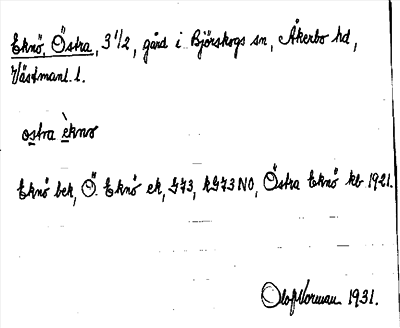 Eknö, Östra, 3 1/2, gård i Björskogs sn, Åkerbo hd,
Västmanl. l.
ostra èkno
Eknö bek, Ö. Eknö ek, G73, kG73NO, Östra Eknö kb 1921.
Olof Norman 1931.